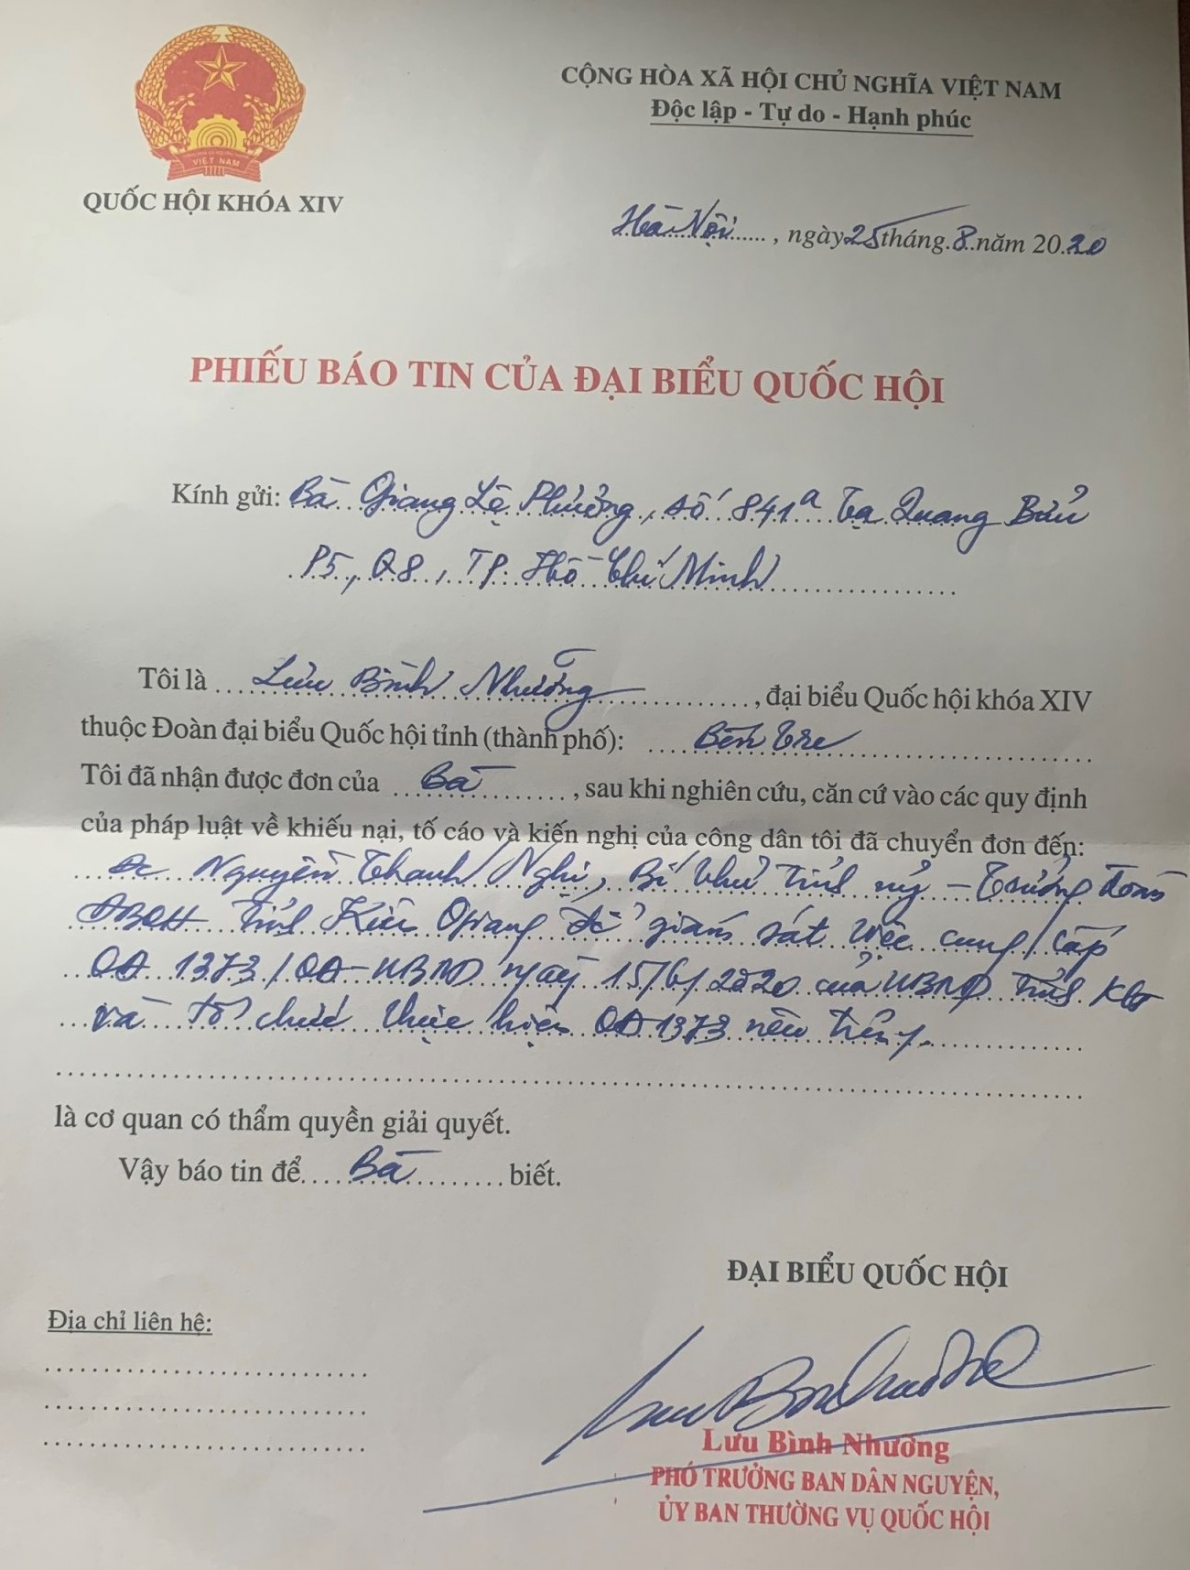 VIỆT NAM
QUỐC HỘI KHÓA XIV
CỘNG HÒA XÃ HỘI CHỦ NGHĨA VIỆT NAM
Độc lập - Tự do - Hạnh phúc
Hà Nội, ngày 25 tháng 8 năm 2020
PHIẾU BÁO TIN CỦA ĐẠI BIỂU QUỐC HỘI
Kính gửi: Bà Giang Lệ Phưởng, số 841a Tạ Quang Bửu
P5, Q8, TP. Hồ Chí Minh
Tôi là Lưu Bình Nhưỡng, đại biểu Quốc hội khóa XIV
thuộc Đoàn đại biểu Quốc hội tỉnh (thành phố): Bến Tre
Tôi đã nhận được đơn của Bà, sau khi nghiên cứu, căn cứ vào các quy định
của pháp luật về khiếu nại, tố cáo và kiến nghị của công dân tôi đã chuyển đơn đến:
Đc Nguyễn Thanh Nghị, Bí thư Tỉnh ủy - Trưởng Đoàn
ĐBQH Tỉnh Kiên Giang để giám sát việc cung cấp
QĐ 1373/QĐ-UBND ngày 15/6/2020 của UBND Tỉnh KG
và tổ chức thực hiện QĐ 1373 nêu trên.
là cơ quan có thẩm quyền giải quyết.
Vậy báo tin để Bà biết.
ĐẠI BIỂU QUỐC HỘI
Địa chỉ liên hệ:
Lưu Bình Nhưỡng
PHÓ TRƯỞNG BAN DÂN NGUYỆN,
ỦY BAN THƯỜNG VỤ QUỐC HỘI